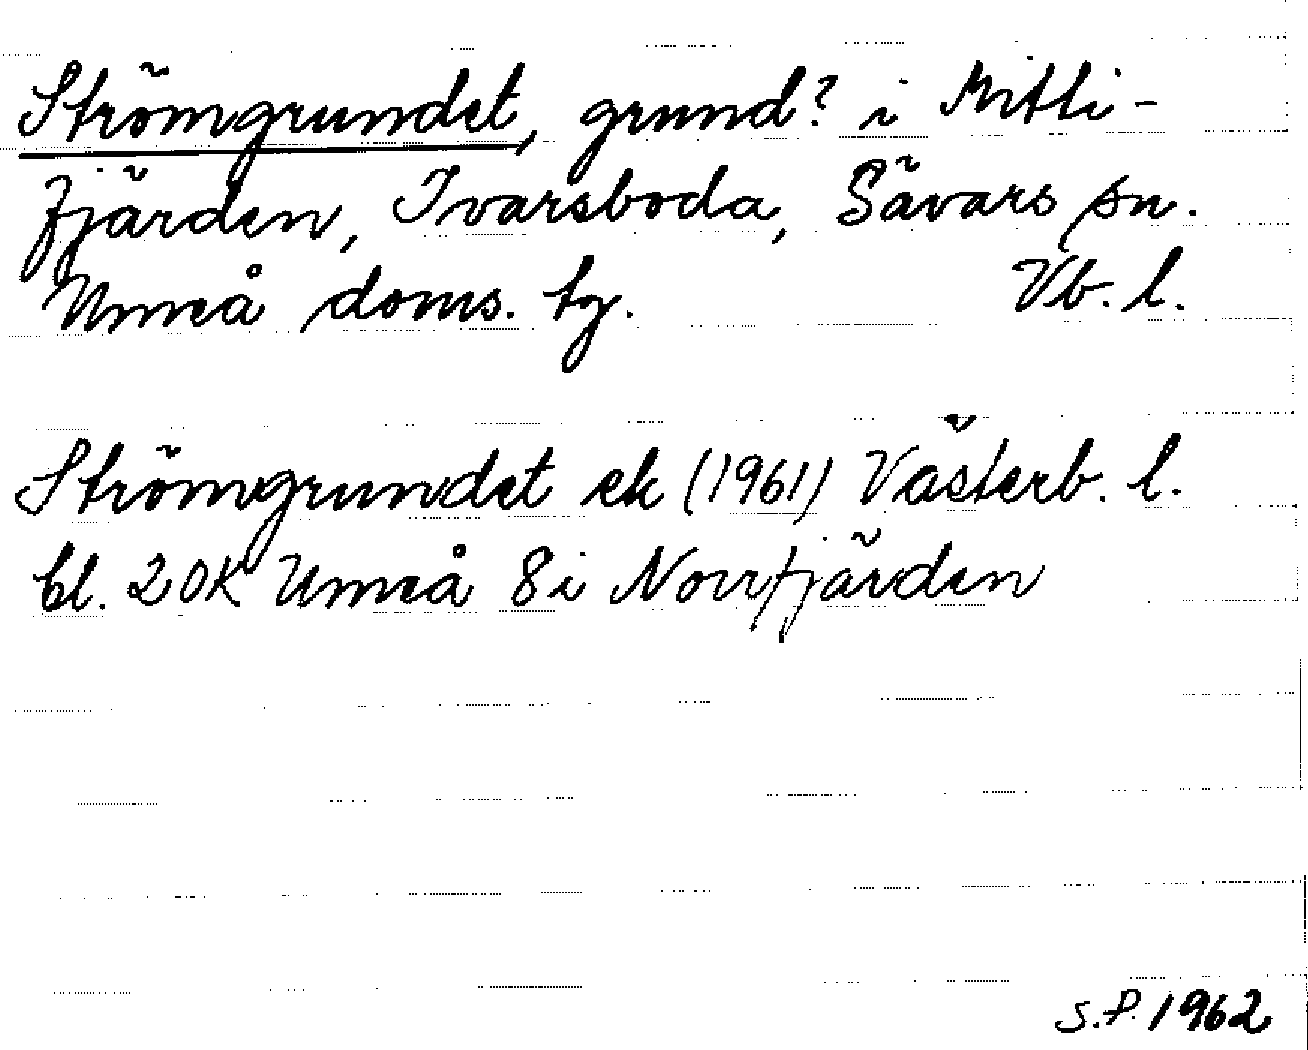 Strömgrundet, grund? i Mitti-
fjärden, Ivarsboda, Sävars sn.
Umeå doms. tg. Vb. l.
Strömgrundet ek (1961) Västerb. l.
bl. 20K Umeå 8i Norrfjärden
S.P. 1962